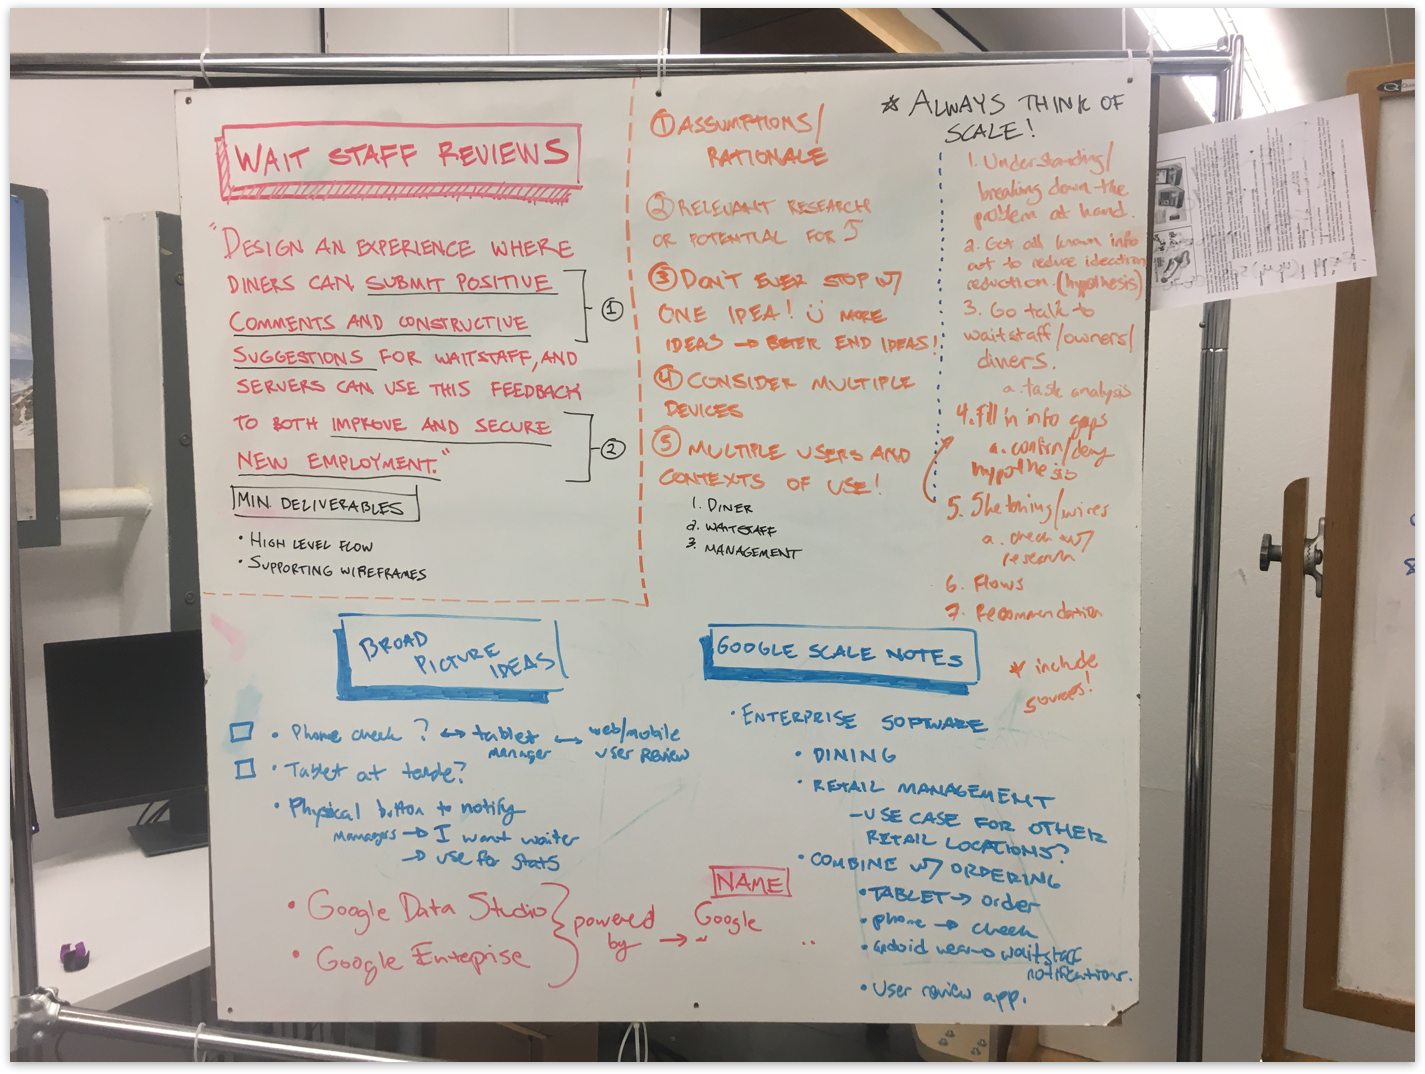 WAIT STAFF REVIEWS
"DESIGN AN EXPERIENCE WHERE
DINERS CAN SUBMIT POSITIVE
COMMENTS AND CONSTRUCTIVE
SUGGESTIONS FOR WAITSTAFF, AND
SERVERS CAN USE THIS FEEDBACK
TO BOTH IMPROVE AND SECURE
NEW EMPLOYMENT."
1
2
MIN. DELIVERABLES
• HIGH LEVEL FLOW
• SUPPORTING WIREFRAMES
1 ASSUMPTIONS/
RATIONALE
2 RELEVANT RESEARCH
OR POTENTIAL FOR
3 DON'T EVER STOP W/
ONE IDEA! MORE
IDEAS → BETER END IDEAS!
4 CONSIDER MULTIPLE
DEVICES
5 MULTIPLE USERS AND
CONTEXTS OF USE!
1. DINER
2. WAITSTAFF
3. MANAGEMENT
* ALWAYS THINK OF
SCALE!
1. Understanding/
breaking down the
problem at hand.
2. Get all known info
out to reduce ideation
reduction. (hypothesis)
3. Go talk to
waitstaff/owners/
diners.
a. task analysis
4. Fill in info gaps
a. confirm/deny
hypothesis
5. Sketching/wires
a. check w/
research
6. Flows
7. Recommendation
* include
sources!
BROAD
PICTURE
IDEAS
• Phone check? ↔ tablet ↔ web/mobile
manager user review
• Tablet at table?
• Physical button to notify
managers → I want waiter
→ use for stats
• Google Data Studio
• Google Enteprise
powered
by →
NAME
Google
GOOGLE SCALE NOTES
• ENTERPRISE SOFTWARE
• DINING
• RETAIL MANAGEMENT
- USE CASE FOR OTHER
RETAIL LOCATIONS?
• COMBINE W/ ORDERING
• TABLET → order
• phone → check
• android wear → waitstaff
notifications.
• User review app.